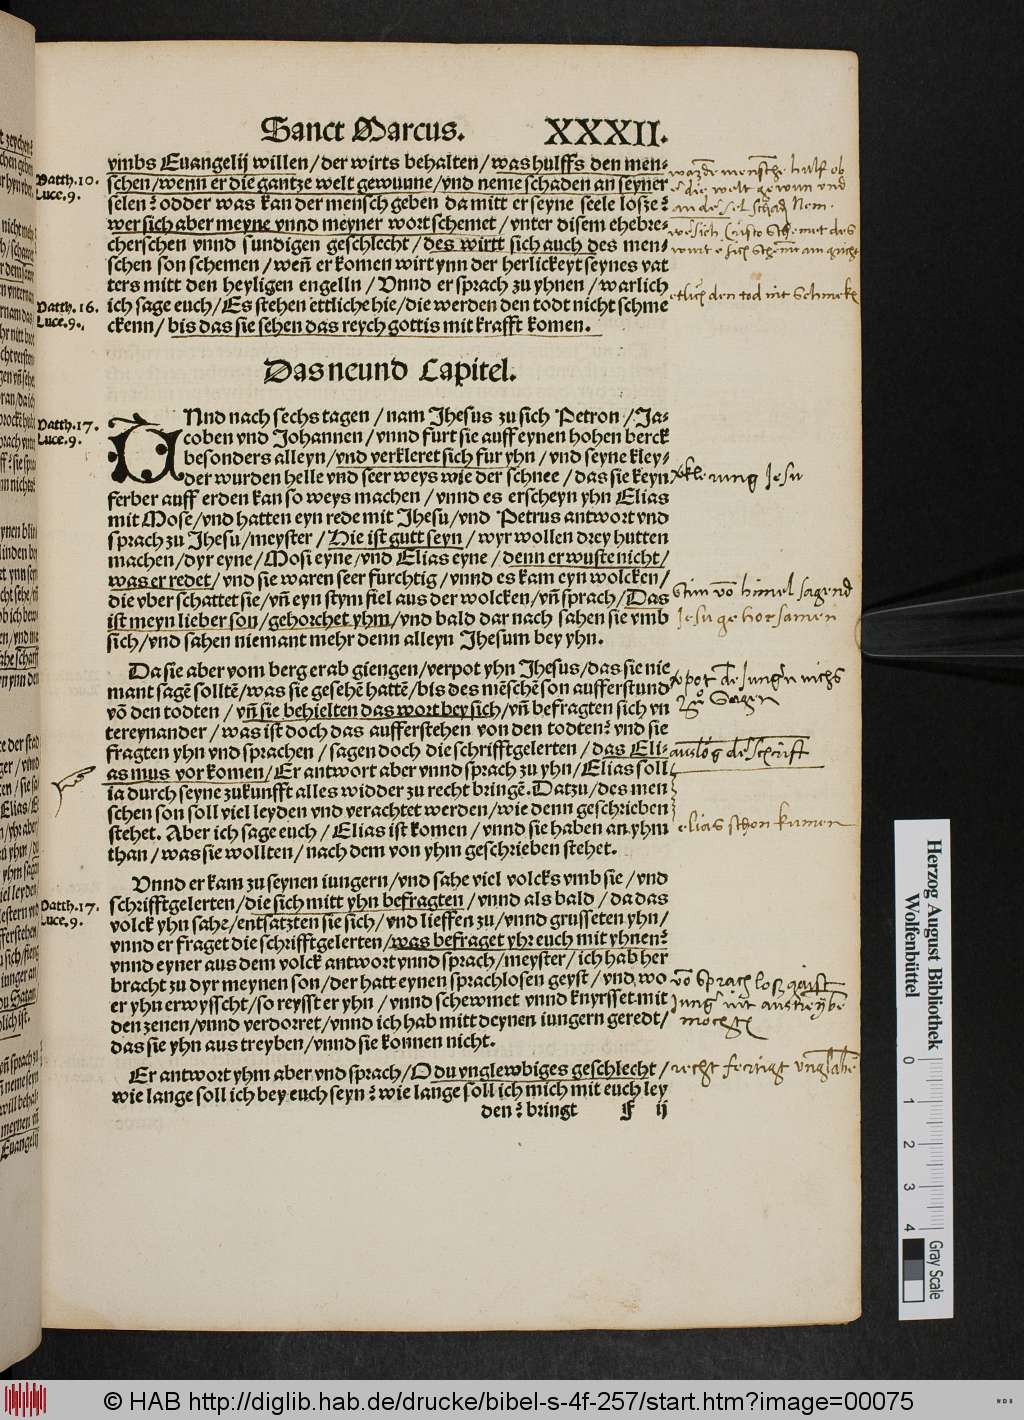 Sanct Marcus. XXXII.
Matth. 10.
Luce. 9.
vmbs Euangelij willen/der wirts behalten/was hulffs den men-
schen/wenn er die gantze welt gewunne/vnd neme schaden an seyner
selen? odder was kan der mensch geben da mitt er seyne seele losze?
wer sich aber meyne vnnd meyner wort schemet/vnter disem ehebre-
cherschen vnnd sundigen geschlecht/des wirtt sich auch des men-
schen son schemen/weñ er komen wirt ynn der herlickeyt seynes vat
ters mitt den heyligen engelln/Vnnd er sprach zu yhnen/warlich
Matth. 16.
Luce. 9.
ich sage euch/Es stehen ettliche hie/die werden den todt nicht schme
ckenn/bis das sie sehen das reych gottis mit krafft komen.
Das neund Capitel.
Matth. 17.
Luce. 9.
VNnd nach sechs tagen/nam Jhesus zu sich Petron/Ja-
coben vnd Johannen/vnnd furt sie auff eynen hohen berck
besonders alleyn/vnd verkleret sich fur yhn/vnd seyne kley-
der wurden helle vnd seer weys wie der schnee/das sie keyn
ferber auff erden kan so weys machen/vnnd es erscheyn yhn Elias
mit Mose/vnd hatten eyn rede mit Jhesu/vnd Petrus antwort vnd
sprach zu Jhesu/meyster/Hie ist gutt seyn/wyr wollen drey hutten
machen/dyr eyne/Mosi eyne/vnd Elias eyne/denn er wuste nicht/
was er redet/vnd sie waren seer furchtig/vnnd es kam eyn wolcken/
die vber schattet sie/vñ eyn stym fiel aus der wolcken/vñ sprach/Das
ist meyn lieber son/gehorchet yhm/vnd bald dar nach sahen sie vmb
sich/vnd sahen niemant mehr denn alleyn Jhesum bey yhn.
Da sie aber vom berg erab giengen/verpot yhn Jhesus/das sie nie
mant sagẽ solltẽ/was sie gesehẽ hattẽ/bis des mẽschẽ son aufferstund
võ den todten/vñ sie behielten das wort bey sich/vñ befragten sich vn
tereynander/was ist doch das aufferstehen von den todten? vnd sie
fragten yhn vnd sprachen/sagen doch die schrifftgelerten/das Eli-
as mus vor komen/Er antwort aber vnnd sprach zu yhn/Elias soll
ia durch seyne zukunfft alles widder zu recht bringẽ. Datzu/des men
schen son soll viel leyden vnd verachtet werden/wie denn geschrieben
stehet. Aber ich sage euch/Elias ist komen/vnnd sie haben an yhm
than/was sie wollten/nach dem von yhm geschrieben stehet.
Vnnd er kam zu seynen iungern/vnd sahe viel volcks vmb sie/vnd
Matth. 17.
Luce. 9.
schrifftgelerten/die sich mitt yhn befragten/vnnd als bald/da das
volck yhn sahe/entsatzten sie sich/vnd lieffen zu/vnnd grusseten yhn/
vnnd er fraget die schrifftgelerten/was befraget yhr euch mit yhnen?
vnnd eyner aus dem volck antwort vnnd sprach/meyster/ich hab her
bracht zu dyr meynen son/der hatt eynen sprachlosen geyst/vnd wo
er yhn erwysscht/so reysst er yhn/vnnd schewmet vnnd knyrsset mit
den zenen/vnnd verdorret/vnnd ich hab mitt deynen iungern geredt/
das sie yhn aus treyben/vnnd sie konnen nicht.
Er antwort yhm aber vnd sprach/O du vnglewbiges geschlecht/
wie lange soll ich bey euch seyn? wie lange soll ich mich mit euch ley
den? bringt F ij
die welt gewun vnd
etlich den tod nit Schmeken
verklerung Jesu
Stim võ himel sagend
Jesu gehorsamen
Zů Sagen
elias schon kumen
Herzog August Bibliothek
Wolfenbüttel
0 1 2 3 4
Gray Scale
© HAB http://diglib.hab.de/drucke/bibel-s-4f-257/start.htm?image=00075